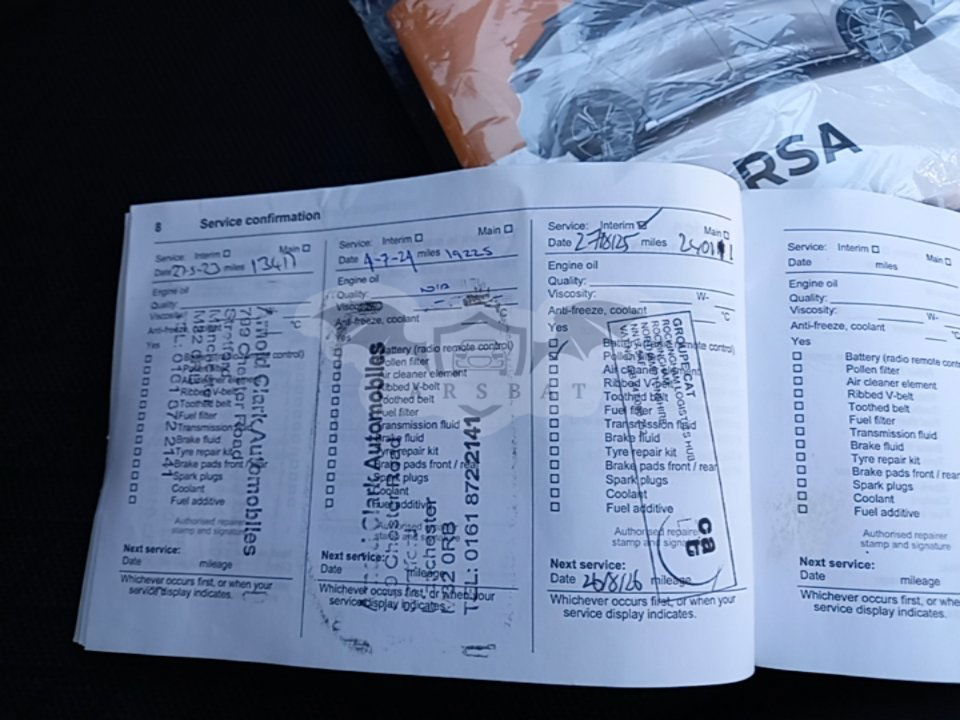 RSA
8 Service confirmation
Service: Interim Main
Date 27-3-23 miles
Engine oil
Quality:
Yes
Ribbed V-belt
Toothed belt
Fuel filter
Brake fluid
Tyre repair kit
Brake pads front /
Spark plugs
Coolant
Fuel additive
Authorised repairer
stamp and signature
Arnold Clark Automobiles
Next service:
Date mileage
Whichever occurs first, or when your
service display indicates.
Service: Interim Main
Date 4-7-24 miles 19225
Engine oil
Quality:
Viscosity:
Anti-freeze, coolant
Battery (radio remote control)
Pollen filter
Air cleaner element
Ribbed V-belt
Toothed belt
Fuel filter
Transmission fluid
Brake fluid
Tyre repair kit
Brake pads front / rear
Spark plugs
Coolant
Fuel additive
Clark Automobiles
TEL: 0161 872 2141
Next service:
Date mileage
Whichever occurs first, or when your
service display indicates.
Service: Interim Main
Date 27/8/25 miles
Engine oil
Quality: W-
Viscosity: °C
Anti-freeze, coolant
Yes
Battery (radio remote control)
Pollen filter
Air cleaner element
Ribbed V-belt
Toothed belt
Fuel filter
Transmission fluid
Brake fluid
Tyre repair kit
Brake pads front / rear
Spark plugs
Coolant
Fuel additive
Authorised repairer
stamp and signature
Next service:
Date 26/8/26 mileage
Whichever occurs first, or when your
service display indicates.
Service: Interim Main
Date miles
Engine oil
Quality:
Viscosity: W-
Anti-freeze, coolant °C
Yes
Battery (radio remote
Pollen filter
Air cleaner element
Ribbed V-belt
Toothed belt
Fuel filter
Transmission fluid
Brake fluid
Tyre repair kit
Brake pads front /
Spark plugs
Coolant
Fuel additive
Authorised repairer
stamp and signature
Next service:
Date mileage
Whichever occurs first, or
service display indicates.
RSBAT